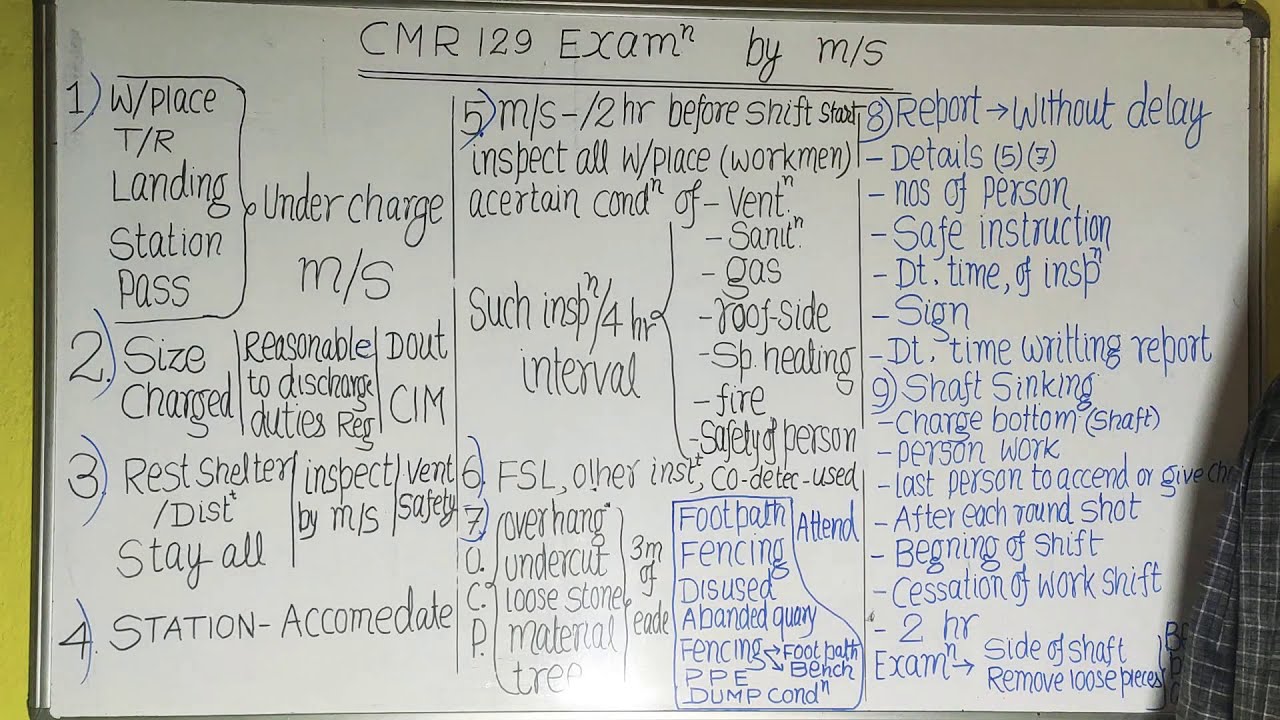 CMR 129 Examⁿ by m/s
1) W/place
T/R
Landing
Station
Pass
Under charge
m/s
2) Size
Charged
Reasonable
to discharge
duties Reg
DOUT
CIM
3) Rest Shelter
/Distᵗ
Stay all
inspect
by m/s
Vent
Safety
4) STATION - Accomedate
5) m/s - /2 hr before shift start
inspect all W/place (workmen)
acertain condⁿ of - Ventⁿ.
- Sanitⁿ.
- gas
- roof-side
- Sp. heating
- fire
- Safety of person
Such inspⁿ/4 hr
interval
6) FSL, other instᵗ, CO-detec-used
7) O.C.P.
overhang
undercut
loose stone
material
tree
3m
of
eade
Footpath
Fencing
Disused
Abanded quary
Fencing → Foot path
→ Bench
PPE
DUMP condⁿ
Attend
8) Report → Without delay
- Details (5) (7)
- nos of person
- Safe instruction
- Dt. time, of inspⁿ
- Sign
- Dt. time writting report
9) Shaft Sinking
- Charge bottom (shaft)
- person work
- last person to accend or give
- After each round shot
- Begning of shift
- Cessation of work shift
- 2 hr
Examⁿ → Side of shaft
Remove loose pieces